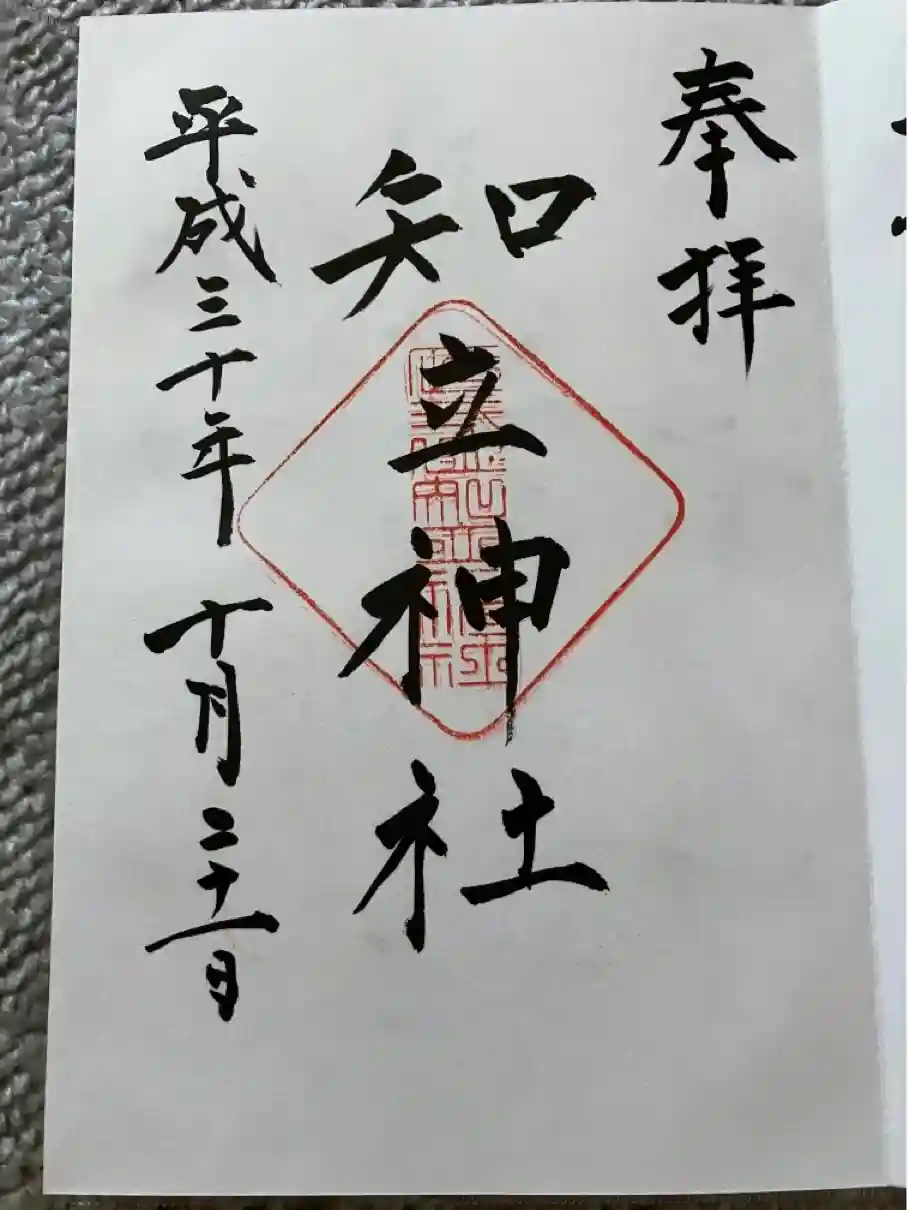 奉拝
知立神社
平成三十年 十月二十一日